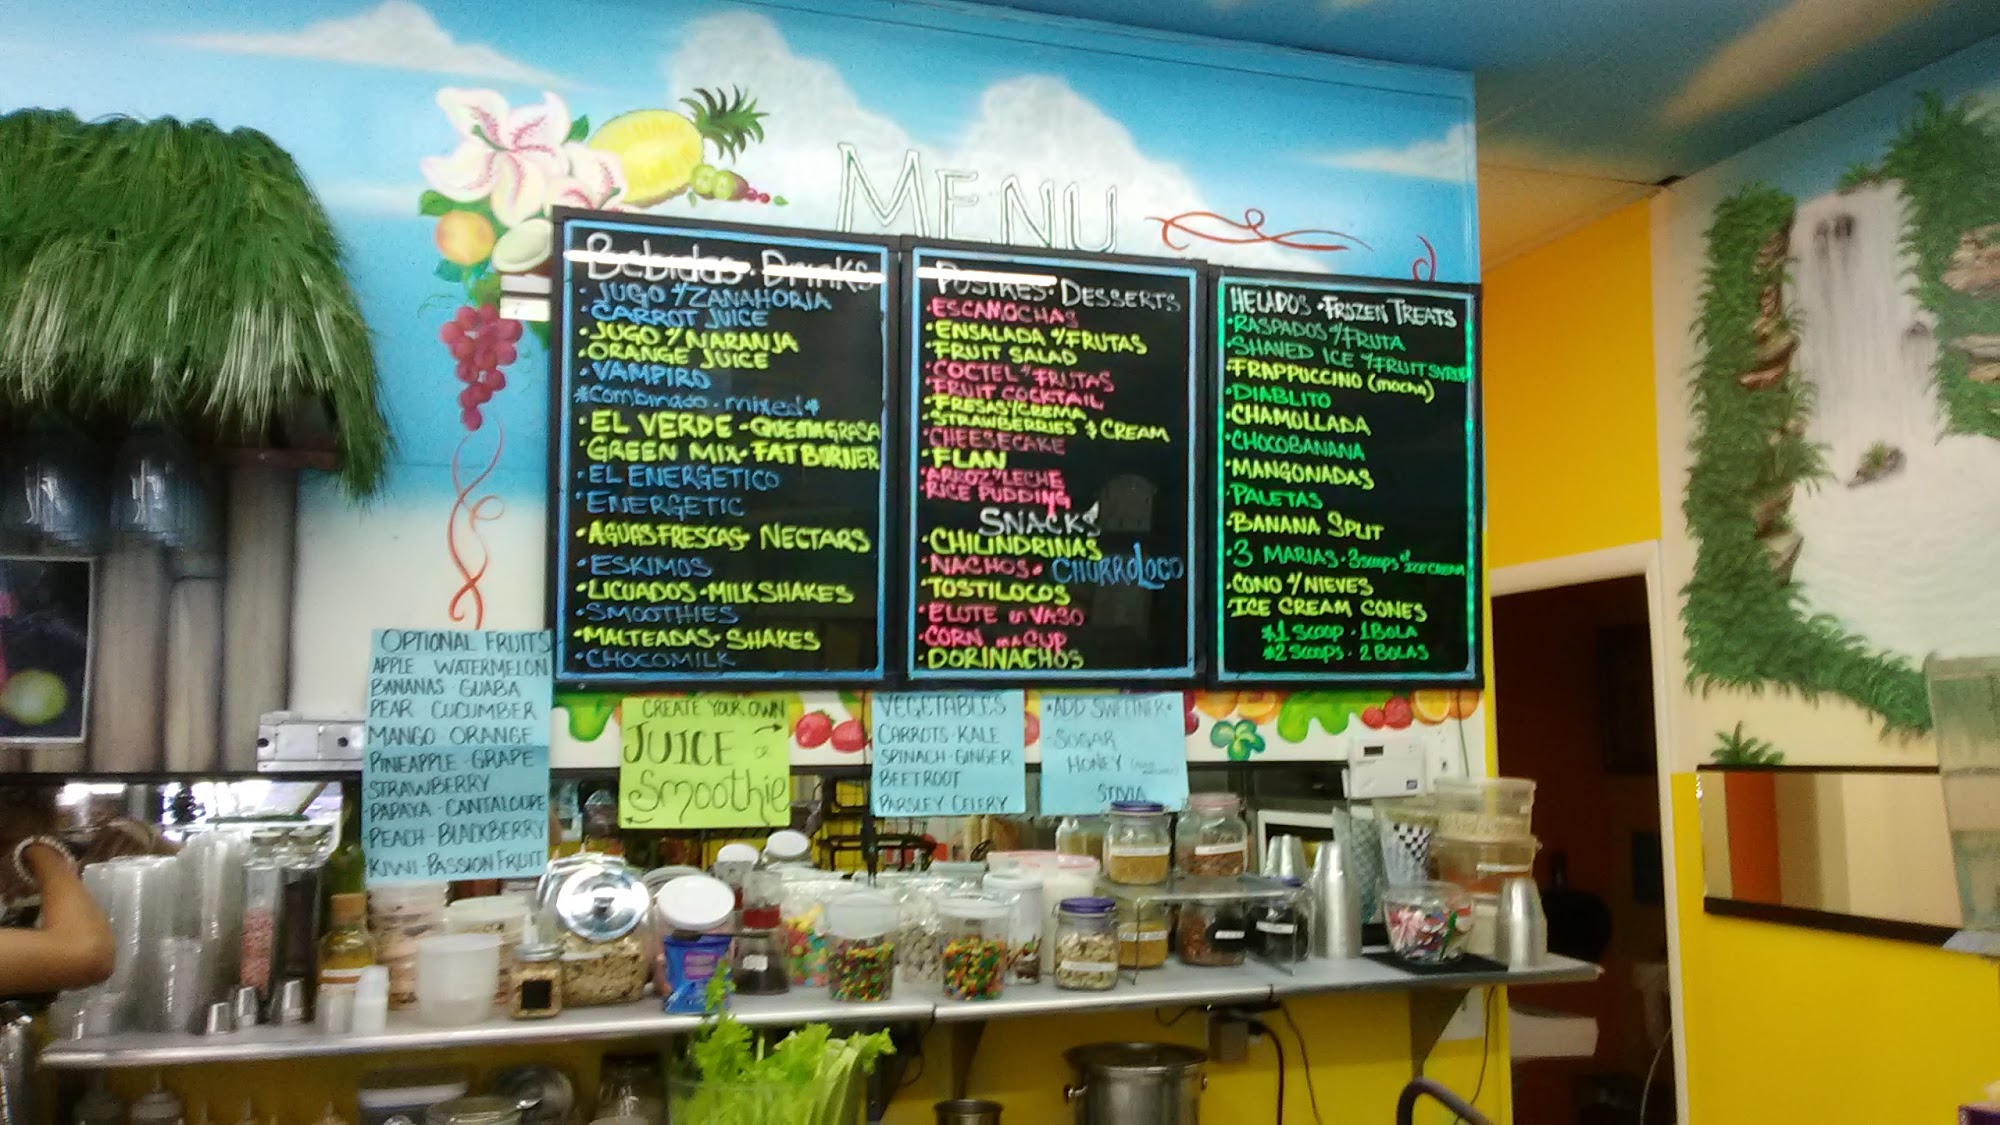 MENU
Bebidas · Drinks
· JUGO d/ZANAHORIA
· CARROT JUICE
· JUGO d/NARANJA
· ORANGE JUICE
· VAMPIRO
*combinado · mixed*
· EL VERDE - QUEMAGRASA
· GREEN MIX · FAT BURNER
· EL ENERGETICO
· ENERGETIC
· AGUAS FRESCAS · NECTARS
· ESKIMOS
· LICUADOS · MILKSHAKES
· SMOOTHIES
· MALTEADAS · SHAKES
· CHOCOMILK
POSTRES · DESSERTS
· ESCAMOCHAS
· ENSALADA d/FRUTAS
· FRUIT SALAD
· COCTEL d/FRUTAS
· FRUIT COCKTAIL
· FRESAS y/CREMA
· STRAWBERRIES & CREAM
· CHEESECAKE
· FLAN
· ARROZ y/LECHE
· RICE PUDDING
SNACKS
· CHILINDRINAS
· NACHOS · CHURROLOCO
· TOSTILOCOS
· ELOTE en VASO
· CORN in a CUP
· DORINACHOS
HELADOS · FROZEN TREATS
· RASPADOS d/FRUTA
· SHAVED ICE d/FRUIT SYRUP
· FRAPPUCCINO (mocha)
· DIABLITO
· CHAMOLLADA
· CHOCOBANANA
· MANGONADAS
· PALETAS
· BANANA SPLIT
· 3 MARIAS · 3 scoops of ICE CREAM
· CONO d/NIEVES
· ICE CREAM CONES
*1 SCOOP · 1 BOLA
*2 SCOOPS · 2 BOLAS
OPTIONAL FRUITS
APPLE WATERMELON
BANANAS · GUABA
PEAR CUCUMBER
MANGO ORANGE
PINEAPPLE · GRAPE
STRAWBERRY
PAPAYA · CANTALOUPE
PEACH · BLACKBERRY
KIWI · PASSION FRUIT
CREATE YOUR OWN
JUICE or
Smoothie
VEGETABLES
CARROTS · KALE
SPINACH · GINGER
BEETROOT
PARSLEY · CELERY
· ADD SWEETNER ·
· SUGAR
HONEY
STIVIA